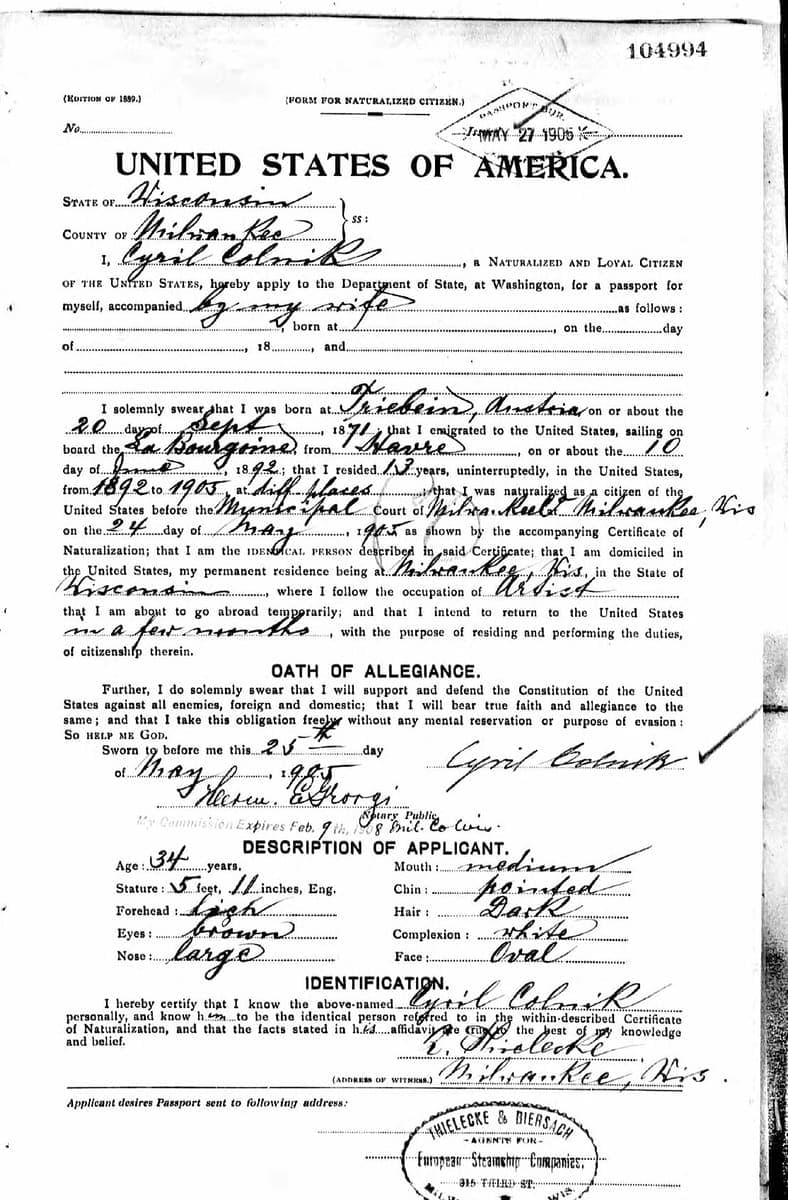 104994
(EDITION OF 1889.)
(FORM FOR NATURALIZED CITIZEN.)
PASSPORT BUR.
No.
MAY 27 1905
UNITED STATES OF AMERICA.
STATE OF Wisconsin
ss:
COUNTY OF Milwaukee
I, Cyril Colnik, a NATURALIZED AND LOYAL CITIZEN
OF THE UNITED STATES, hereby apply to the Department of State, at Washington, for a passport for
myself, accompanied by my wife as follows:
, born at , on the day
of , 18 , and
I solemnly swear that I was born at Triebein, Austria on or about the
20 day of Sept , 1871; that I emigrated to the United States, sailing on
board the La Bourgoine from Havre , on or about the 10
day of June , 1892; that I resided 13 years, uninterruptedly, in the United States,
from 1892 to 1905, at diff places ; that I was naturalized as a citizen of the
United States before the Municipal Court of Milwaukee Milwaukee, Wis
on the 24 day of May , 1905 as shown by the accompanying Certificate of
Naturalization; that I am the IDENTICAL PERSON described in said Certificate; that I am domiciled in
the United States, my permanent residence being at Milwaukee, Wis, in the State of
Wisconsin , where I follow the occupation of Artist
that I am about to go abroad temporarily; and that I intend to return to the United States
in a few months , with the purpose of residing and performing the duties,
of citizenship therein.
OATH OF ALLEGIANCE.
Further, I do solemnly swear that I will support and defend the Constitution of the United
States against all enemies, foreign and domestic; that I will bear true faith and allegiance to the
same; and that I take this obligation freely without any mental reservation or purpose of evasion:
SO HELP ME GOD.
Sworn to before me this 25th day
Cyril Colnik
of May , 1905
Herm. E Georgi
Notary Public
My Commission Expires Feb. 9th, 1908 Mil. Co Wis.
DESCRIPTION OF APPLICANT.
Age: 34 years. Mouth: medium
Stature: 5 feet, 11 inches, Eng. Chin: pointed
Forehead: high Hair: Dark
Eyes: brown Complexion: white
Nose: large Face: Oval
IDENTIFICATION.
I hereby certify that I know the above-named Cyril Colnik
personally, and know him to be the identical person referred to in the within-described Certificate
of Naturalization, and that the facts stated in his affidavit are true to the best of my knowledge
and belief.
Thielecke
(ADDRESS OF WITNESS.) Milwaukee, Wis.
Applicant desires Passport sent to following address:
THIELECKE & DIERSACH
-AGENTS FOR-
European Steamship Companies.
315 THIRD ST.